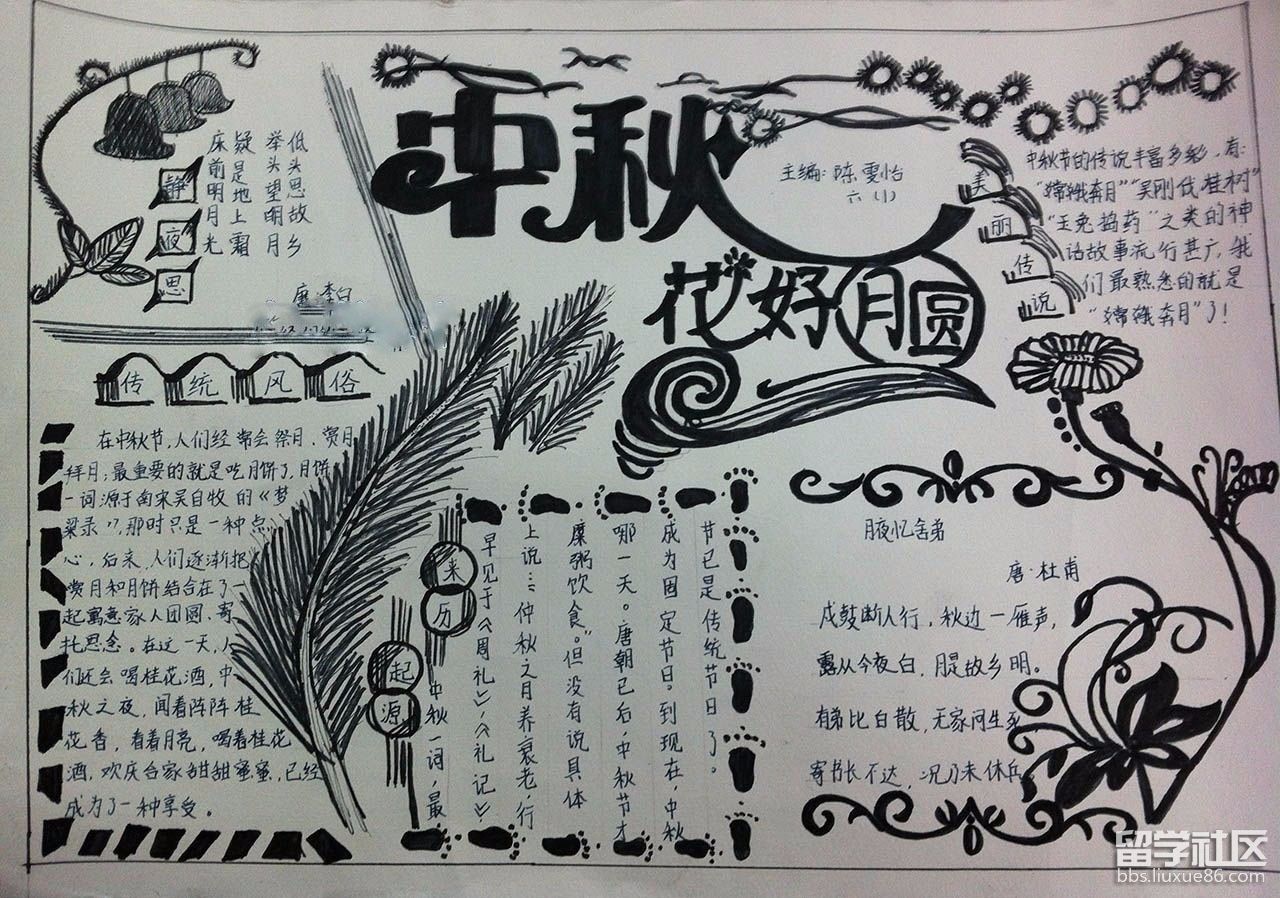 中秋
花好月圆
主编:陈雯怡
六(1)
静夜思
床前明月光
疑是地上霜
举头望明月
低头思故乡
唐·李白
美丽传说
中秋节的传说丰富多彩,有:
"嫦娥奔月""吴刚伐桂树"
"玉兔捣药"之类的神
话故事流行甚广,我
们最熟悉的就是
"嫦娥奔月"了!
传统风俗
在中秋节,人们经常会祭月、赏月
拜月;最重要的就是吃月饼了,月饼
一词源于南宋吴自牧的《梦
粱录》,那时只是一种点
心,后来,人们逐渐把
赏月和月饼结合在了一
起寓意家人团圆、寄
托思念。在这一天,人
们还会喝桂花酒,中
秋之夜,闻着阵阵桂
花香,看着月亮,喝着桂花
酒,欢庆合家甜甜蜜蜜,已经
成为了一种享受。
来历
起源
中秋一词,最
早见于《周礼》,《礼记》
上说:"仲秋之月养衰老,行
糜粥饮食。"但没有说具体
哪一天。唐朝已后,中秋节才
成为固定节日。到现在,中秋
节已是传统节日了。
月夜忆舍弟
唐·杜甫
戍鼓断人行,秋边一雁声,
露从今夜白,月是故乡明。
有弟皆散,无家问生死
寄书长不达,况乃未休兵。
留学社区
bbs.liuxue86.com